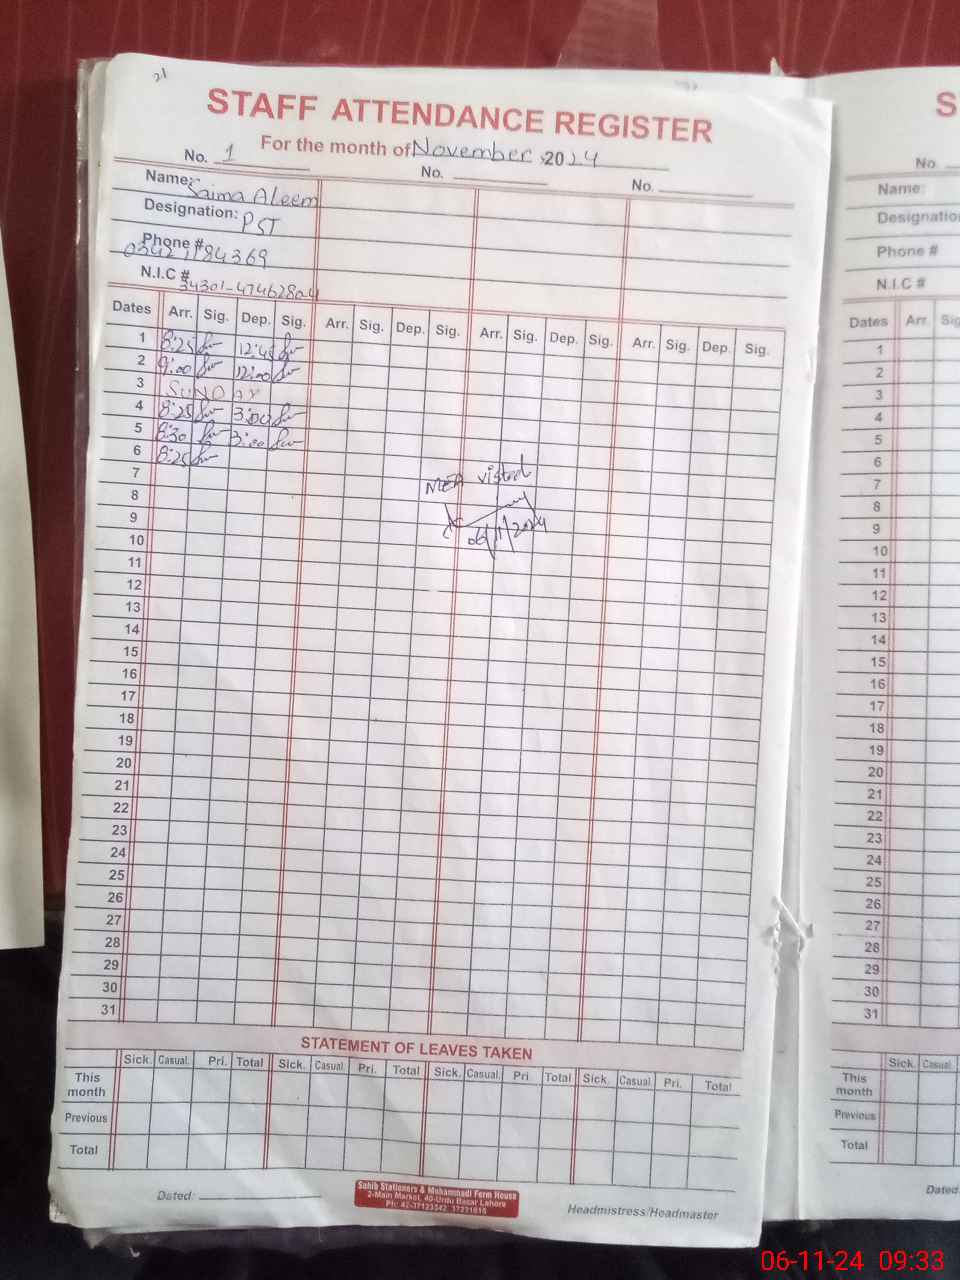 21
STAFF ATTENDANCE REGISTER
For the month of November 2024
No. 1 No. No.
Name: Saima Aleem
Designation: PST
Phone #
N.I.C #
Dates Arr. Sig. Dep. Sig. Arr. Sig. Dep. Sig. Arr. Sig. Dep. Sig. Arr. Sig. Dep. Sig.
1 8:25 12:45
2 9:00 12:00
3 SUNDAY
4 8:25 3:00
5 8:30 3:00
6 8:25
7
8
9
10
11
12
13
14
15
16
17
18
19
20
21
22
23
24
25
26
27
28
29
30
31
MEA visted
06/11/2024
STATEMENT OF LEAVES TAKEN
Sick. Casual. Pri. Total Sick. Casual. Pri. Total Sick. Casual. Pri. Total Sick. Casual. Pri. Total
This month
Previous
Total
Dated:
Sahib Stationers & Muhammadi Form House
2-Main Market, 40-Urdu Bazar Lahore
Ph: 42-37123342
Headmistress/Headmaster
S
No.
Name:
Designatio
Phone #
N.I.C #
Dates Arr. Sig
1
2
3
4
5
6
7
8
9
10
11
12
13
14
15
16
17
18
19
20
21
22
23
24
25
26
27
28
29
30
31
Sick. Casual
This month
Previous
Total
Dated
06-11-24 09:33